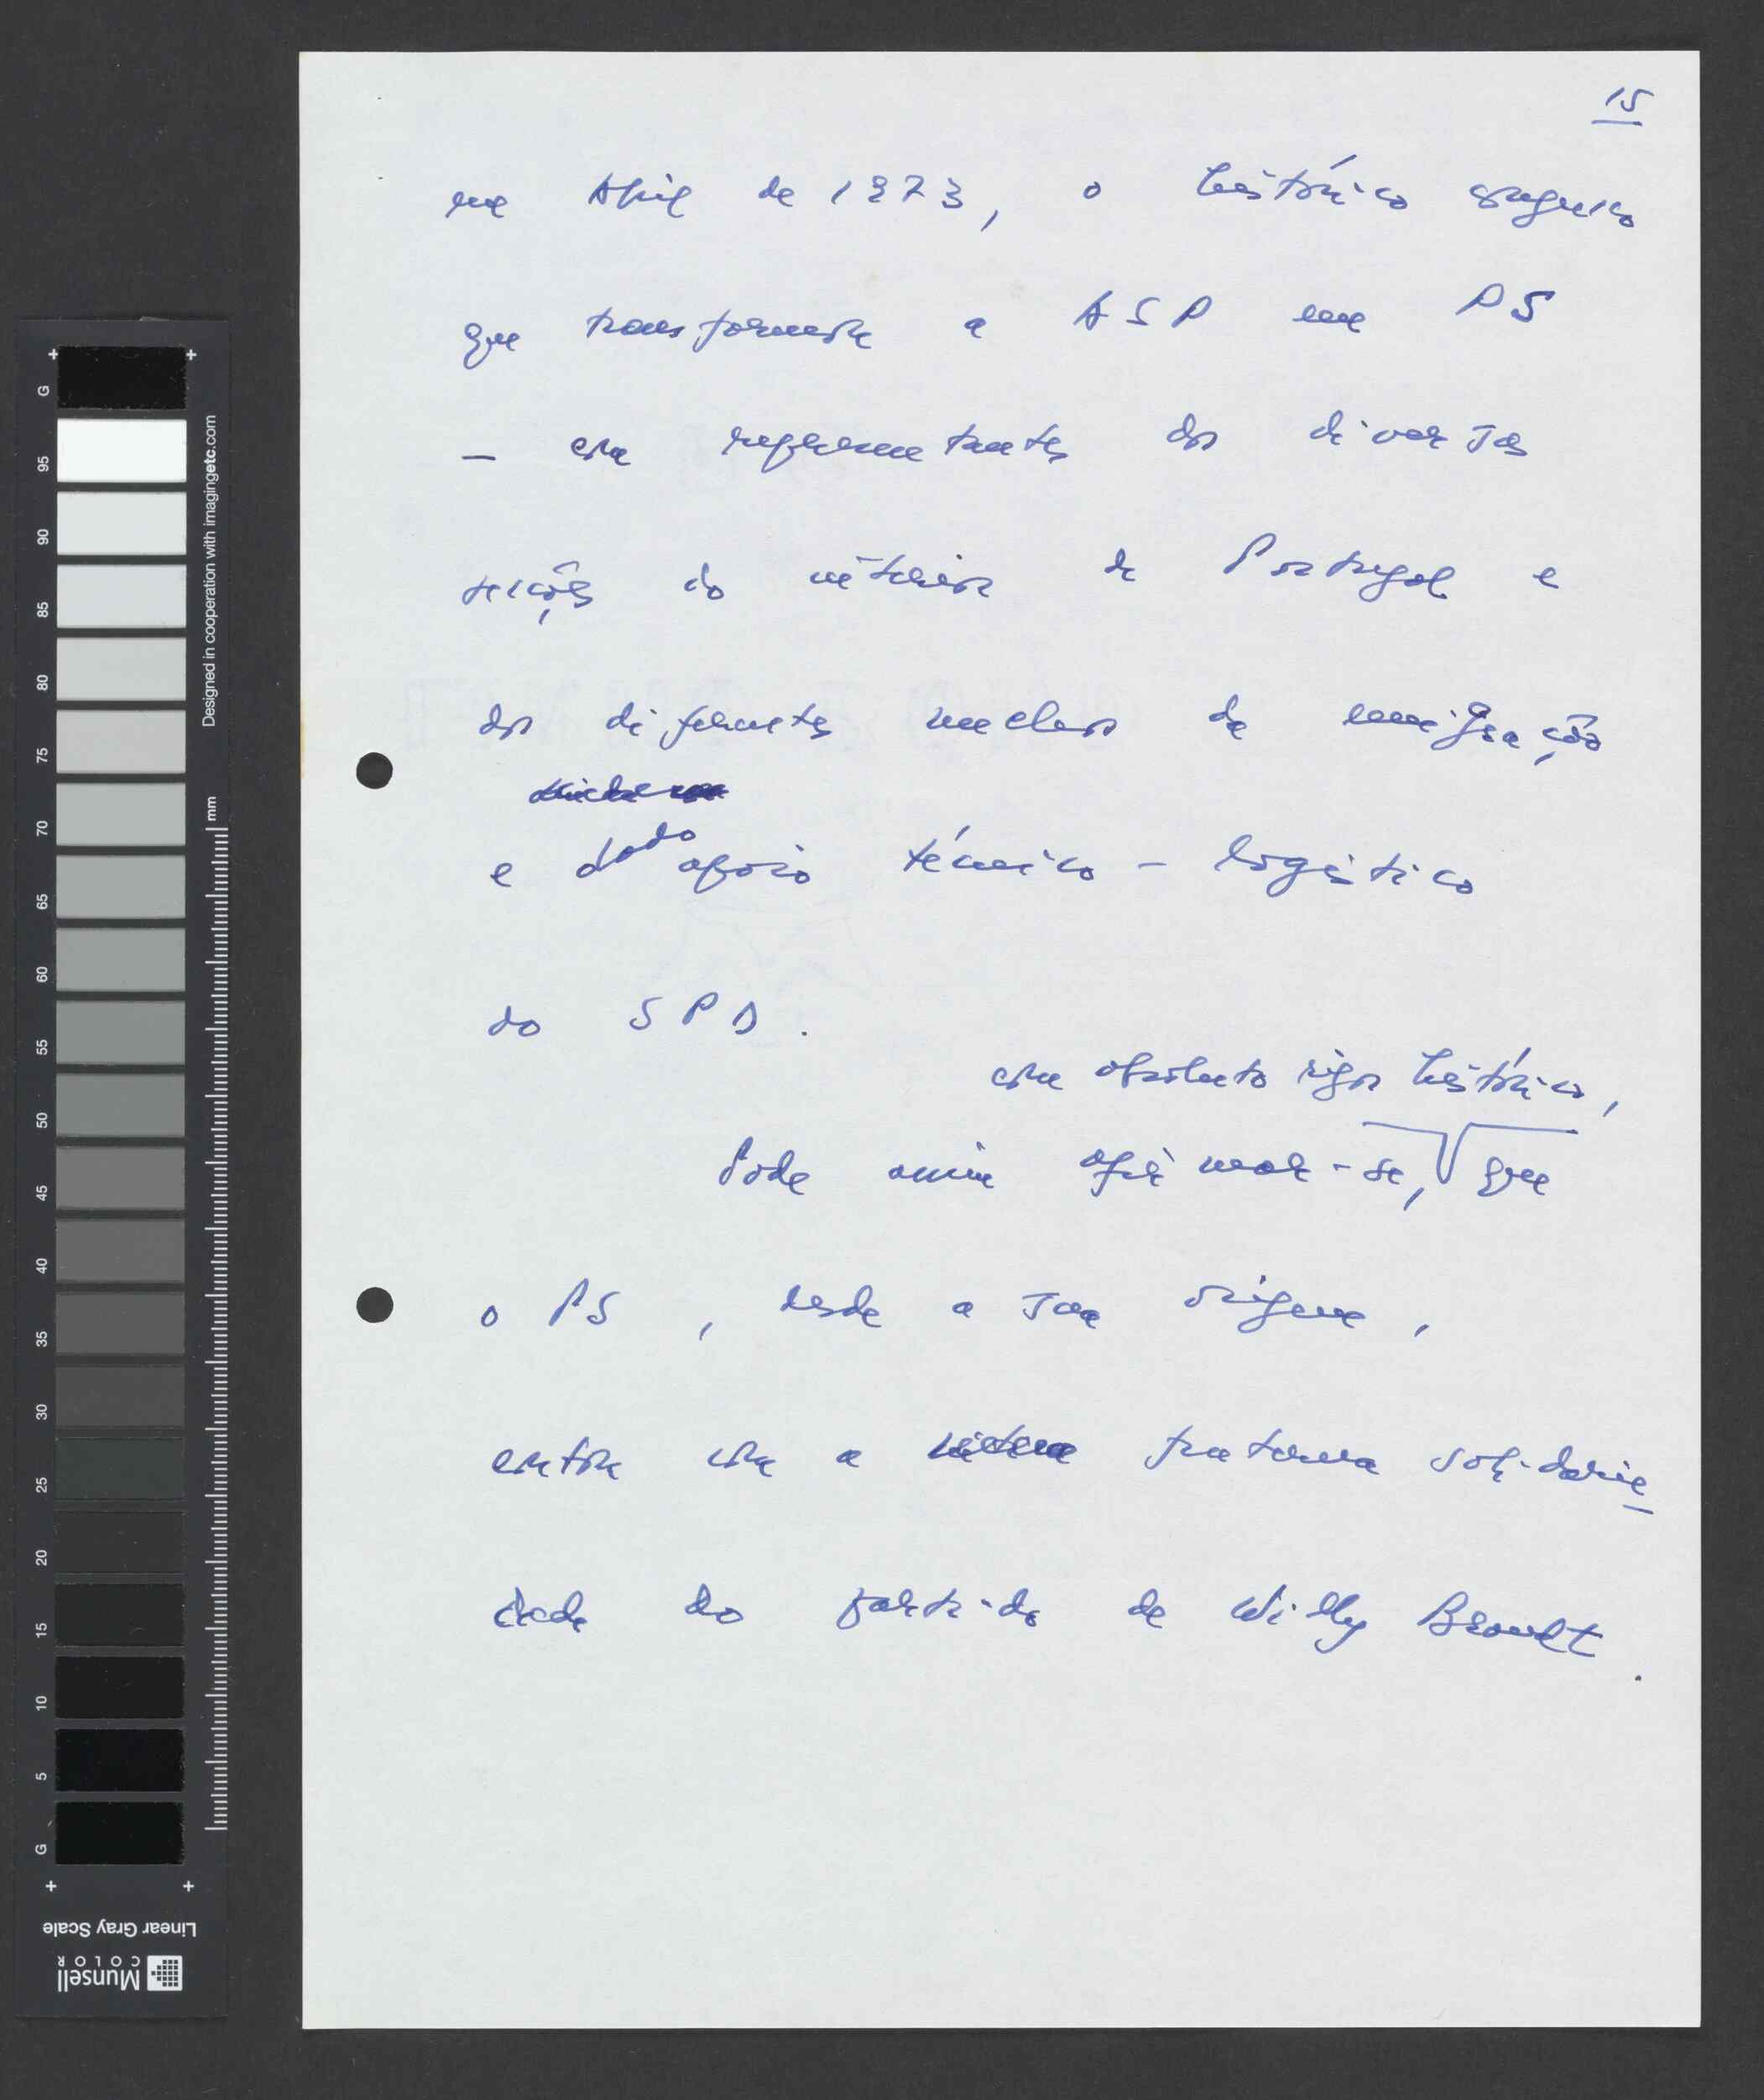 15
em Abril de 1973, o histórico congresso
que transforma a ASP em PS
— com representantes das diversas
secções do interior de Portugal e
dos diferentes nucleos de emigração
e dado apoio técnico-logístico
do SPD.
com absoluto rigor histórico,
Pode assim afirmar-se, que
o PS, desde a sua origem,
contou com a fraterna solidarie
dade do partido de Willy Brandt.
G
95
90
85
80
75
70
65
60
55
50
45
40
35
30
25
20
15
10
5
G
Designed in cooperation with imagingetc.com
mm
Linear Gray Scale
Munsell
COLOR